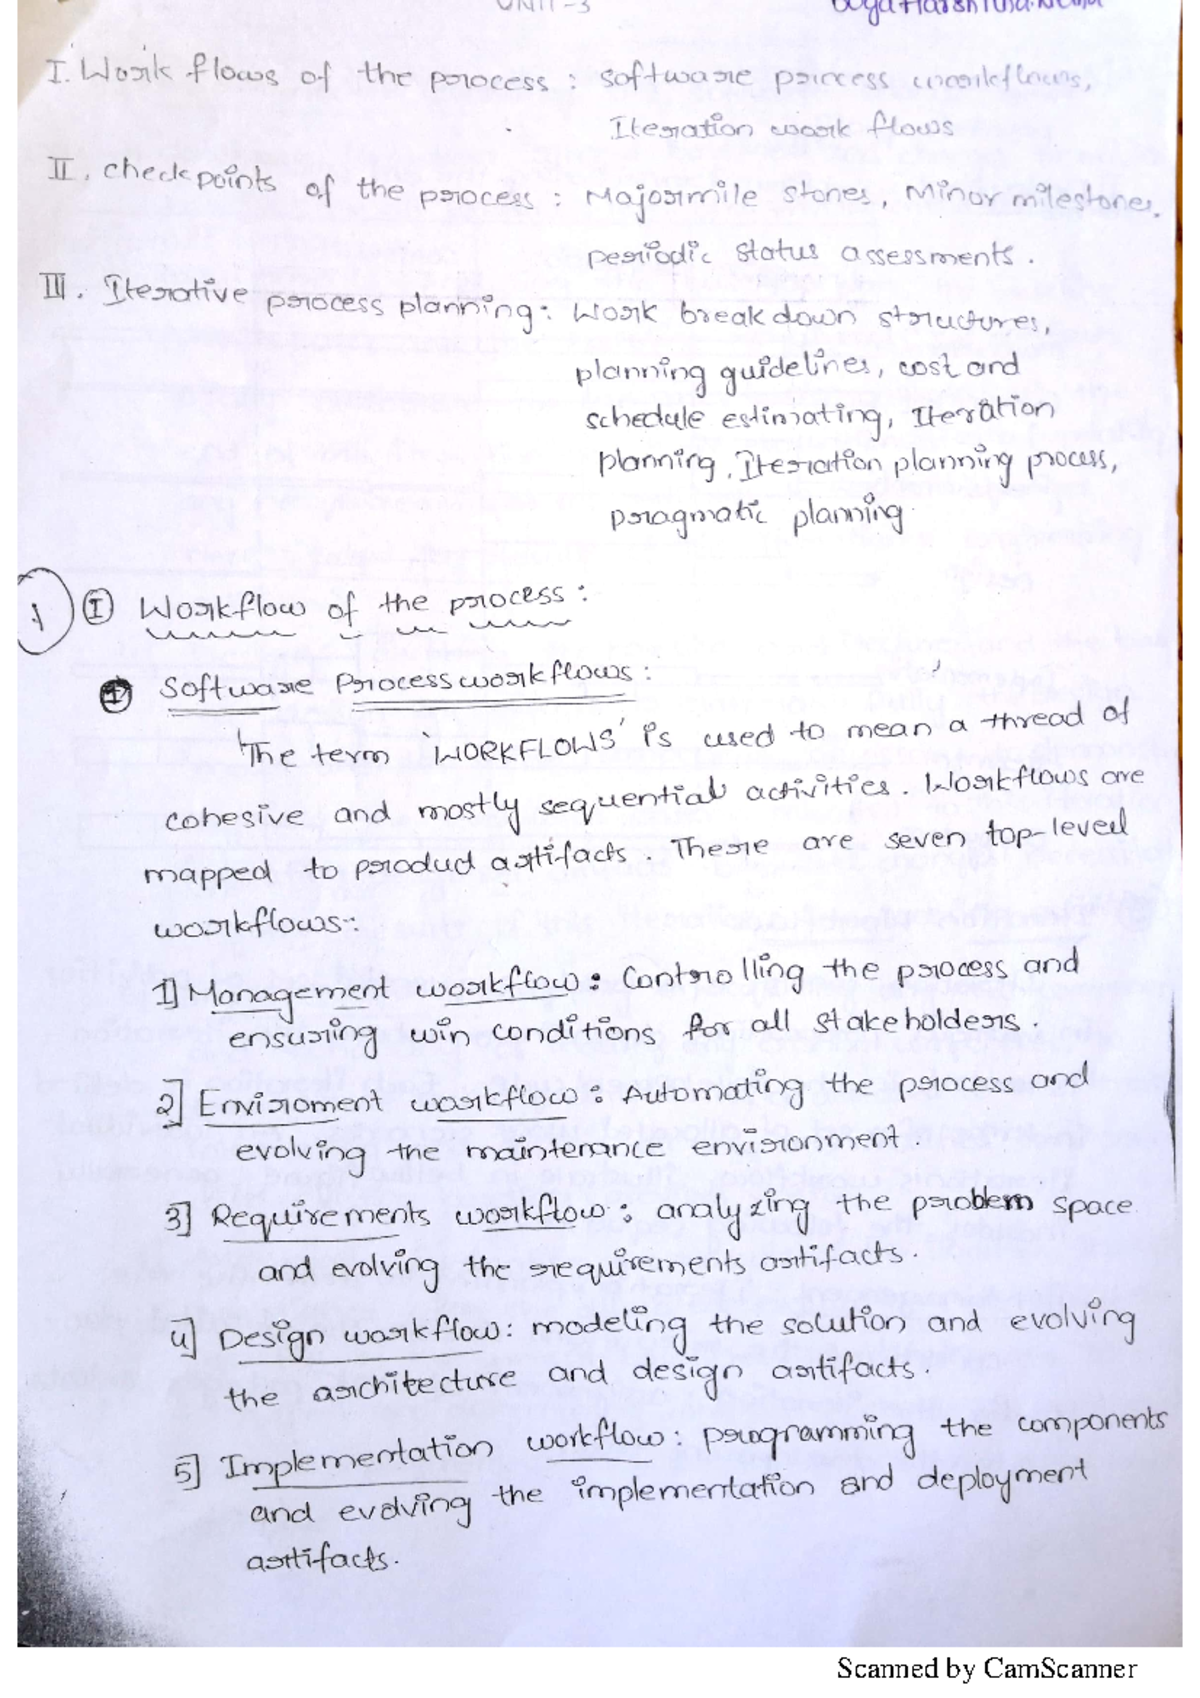 UNIT-3
I. Work flows of the process : software process workflows,
Iteration work flows
II. check points of the process : Major mile stones, Minor milestones.
periodic status assessments.
III. Iterative process planning : Work break down structures,
planning guidelines, cost and
schedule estimating, Iteration
planning, Iteration planning process,
pragmatic planning.
1 (I) Workflow of the process :
(I) Software Process workflows :
The term 'WORKFLOWS' is used to mean a thread of
cohesive and mostly sequential activities. Workflows are
mapped to product artifacts. There are seven top-level
workflows:-
1] Management workflow : Controlling the process and
ensuring win conditions for all stakeholders.
2] Enviroment workflow : Automating the process and
evolving the maintenance environment.
3] Requirements workflow : analyzing the problem space
and evolving the requirements artifacts.
4] Design workflow : modeling the solution and evolving
the architecture and design artifacts.
5] Implementation workflow : programming the components
and evolving the implementation and deployment
artifacts.
Scanned by CamScanner